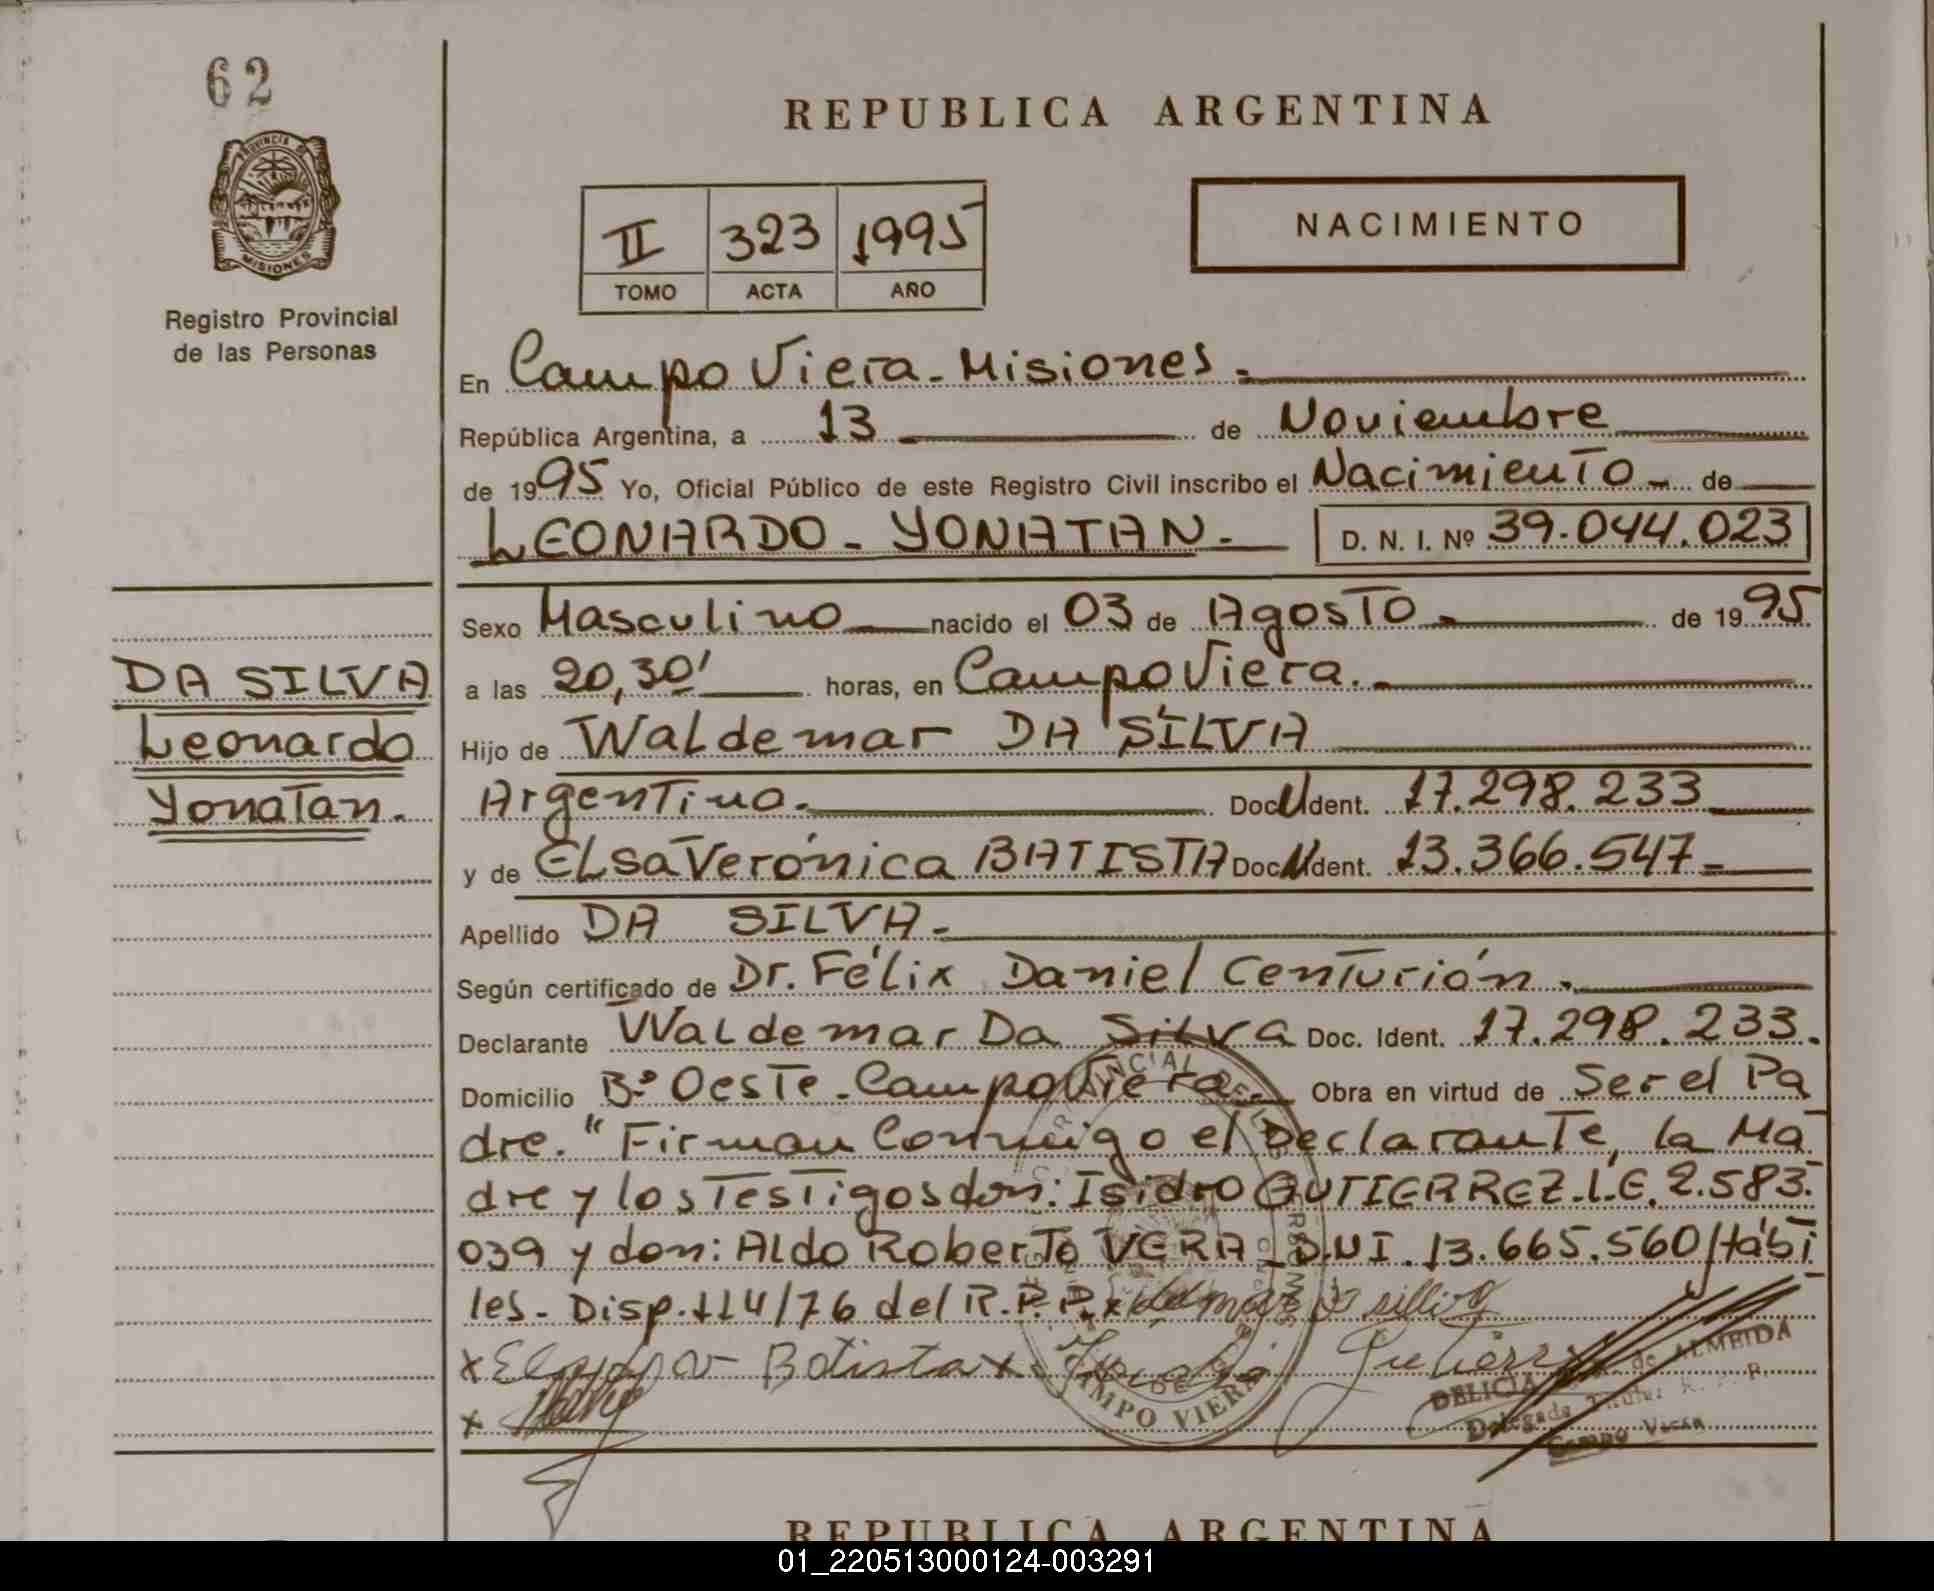 62
PROVINCIA DE
MISIONES
Registro Provincial
de las Personas
REPUBLICA ARGENTINA
II 323 1995
TOMO ACTA AÑO
NACIMIENTO
En Campo Viera - Misiones.
República Argentina, a 13 de Noviembre
de 1995 Yo, Oficial Público de este Registro Civil inscribo el Nacimiento - de
LEONARDO - YONATAN. - D. N. I. Nº 39.044.023
DA SILVA
Leonardo
Yonatan.
Sexo Masculino nacido el 03 de Agosto de 1995
a las 20,30' horas, en Campo Viera.
Hijo de Waldemar DA SILVA
Argentino. Doc. Ident. 17.298.233
y de ELsa Verónica BATISTA Doc. Ident. 13.366.547
Apellido DA SILVA.
Según certificado de Dr. Félix Daniel Centurión.
Declarante Waldemar Da Silva Doc. Ident. 17.298.233.
Domicilio Bº Oeste - Campo Viera. Obra en virtud de Ser el Pa
dre. " Firman Conmigo el Declarante, la Ma
dre y los Testigos don: Isidro GUTIERREZ. L.E. 2.583.
039 y don: Aldo Roberto VERA D.N.I. 13.665.560 Hábi
les - Disp. 114/76 del R.P.P. x
x Batista x
x
CAMPO VIERA
DELICIA de ALMEIDA
Delegada Titular R. P. P.
Campo Viera
REPUBLICA ARGENTINA
01_220513000124-003291